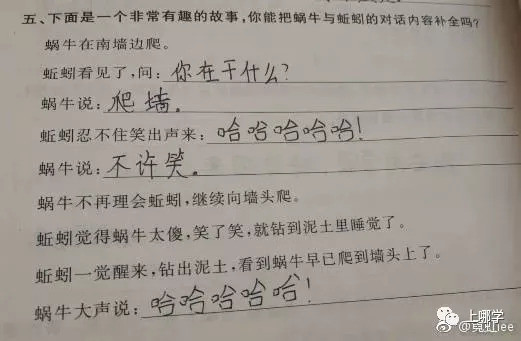 五、下面是一个非常有趣的故事,你能把蜗牛与蚯蚓的对话内容补全吗?
蜗牛在南墙边爬。
蚯蚓看见了,问:你在干什么?
蜗牛说:爬墙。
蚯蚓忍不住笑出声来:哈哈哈哈哈!
蜗牛说:不许笑。
蜗牛不再理会蚯蚓,继续向墙头爬。
蚯蚓觉得蜗牛太傻,笑了笑,就钻到泥土里睡觉了。
蚯蚓一觉醒来,钻出泥土,看到蜗牛早已爬到墙头上了。
蜗牛大声说:哈哈哈哈哈!
上哪学